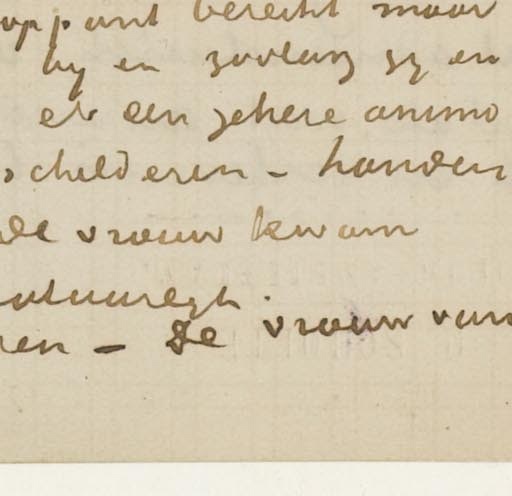 oppant berecht maar
hy en zoolang gy en
er een zekere animo
schilderen - honden
de vrouw kwam
natuurlyk
ren - De vrouw van